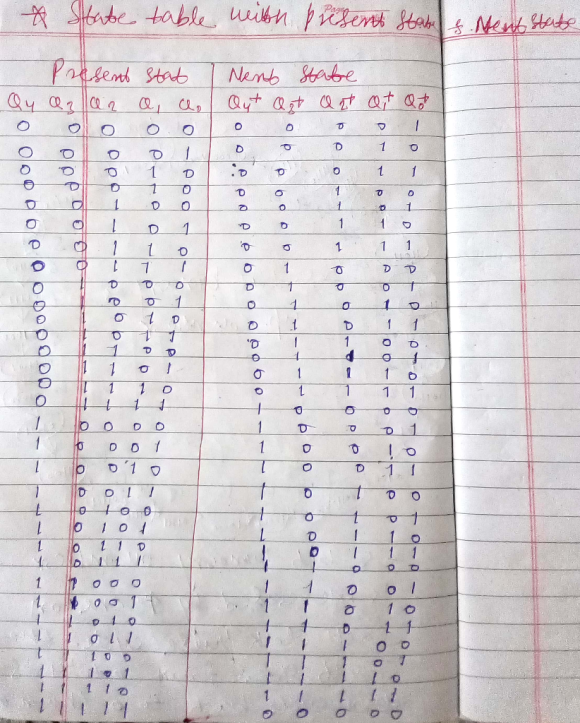 * State table with Present State & Next State
Present Stat Next State
Q4 Q3 Q2 Q1 Q0 Q4+ Q3+ Q2+ Q1+ Q0+
0 0 0 0 0 0 0 0 0 1
0 0 0 0 1 0 0 0 1 0
0 0 0 1 0 0 0 0 1 1
0 0 0 1 0 0 0 1 0 0
0 0 1 0 0 0 0 1 0 1
0 0 1 0 1 0 0 1 1 0
0 0 1 1 0 0 0 1 1 1
0 0 1 1 1 0 1 0 0 0
0 1 0 0 0 0 1 0 0 1
0 1 0 0 1 0 1 0 1 0
0 1 0 1 0 0 1 0 1 1
0 1 0 1 1 0 1 1 0 0
0 1 1 0 0 0 1 1 0 1
0 1 1 0 1 0 1 1 1 0
0 1 1 1 0 0 1 1 1 1
0 1 1 1 1 1 0 0 0 0
1 0 0 0 0 1 0 0 0 1
1 0 0 0 1 1 0 0 1 0
1 0 0 1 0 1 0 0 1 1
1 0 0 1 1 1 0 1 0 0
1 0 1 0 0 1 0 1 0 1
1 0 1 0 1 1 0 1 1 0
1 0 1 1 0 1 0 1 1 1
1 0 1 1 1 1 1 0 0 0
1 1 0 0 0 1 1 0 0 1
1 1 0 0 1 1 1 0 1 0
1 1 0 1 0 1 1 0 1 1
1 1 0 1 1 1 1 1 0 0
1 1 1 0 0 1 1 1 0 1
1 1 1 0 1 1 1 1 1 0
1 1 1 1 0 1 1 1 1 1
1 1 1 1 1 0 0 0 0 0